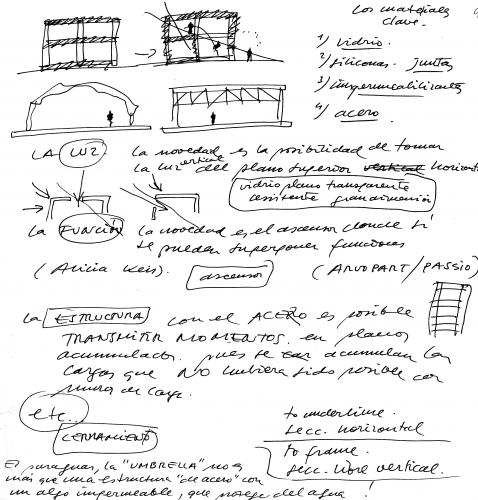 Los materiales
clave.
1) vidrio.
2) siliconas. juntas
3) impermeabilizantes
4) acero.
LA LUZ la novedad es la posibilidad de tomar
la luz vertical del plano superior vertical horizont
vidrio plano transparente
resistente gran dimensión
la FUNCIÓN la novedad es el ascensor donde sí
se pueden superponer funciones
(Alicia Keis). ascensor (ARVO PART/PASSIO)
la ESTRUCTURA con el ACERO es posible
TRANSMITIR MOMENTOS. en planos
acumulados. pues se acumulan las
cargas que NO hubiera sido posible con
muros de carga.
etc...
CERRAMIENTO
to underline.
secc. horizontal
to frame.
secc. libre vertical.
El paraguas, la "UMBRELLA" no es
más que una estructura "de acero" con
un algo impermeable, que protege del agua!